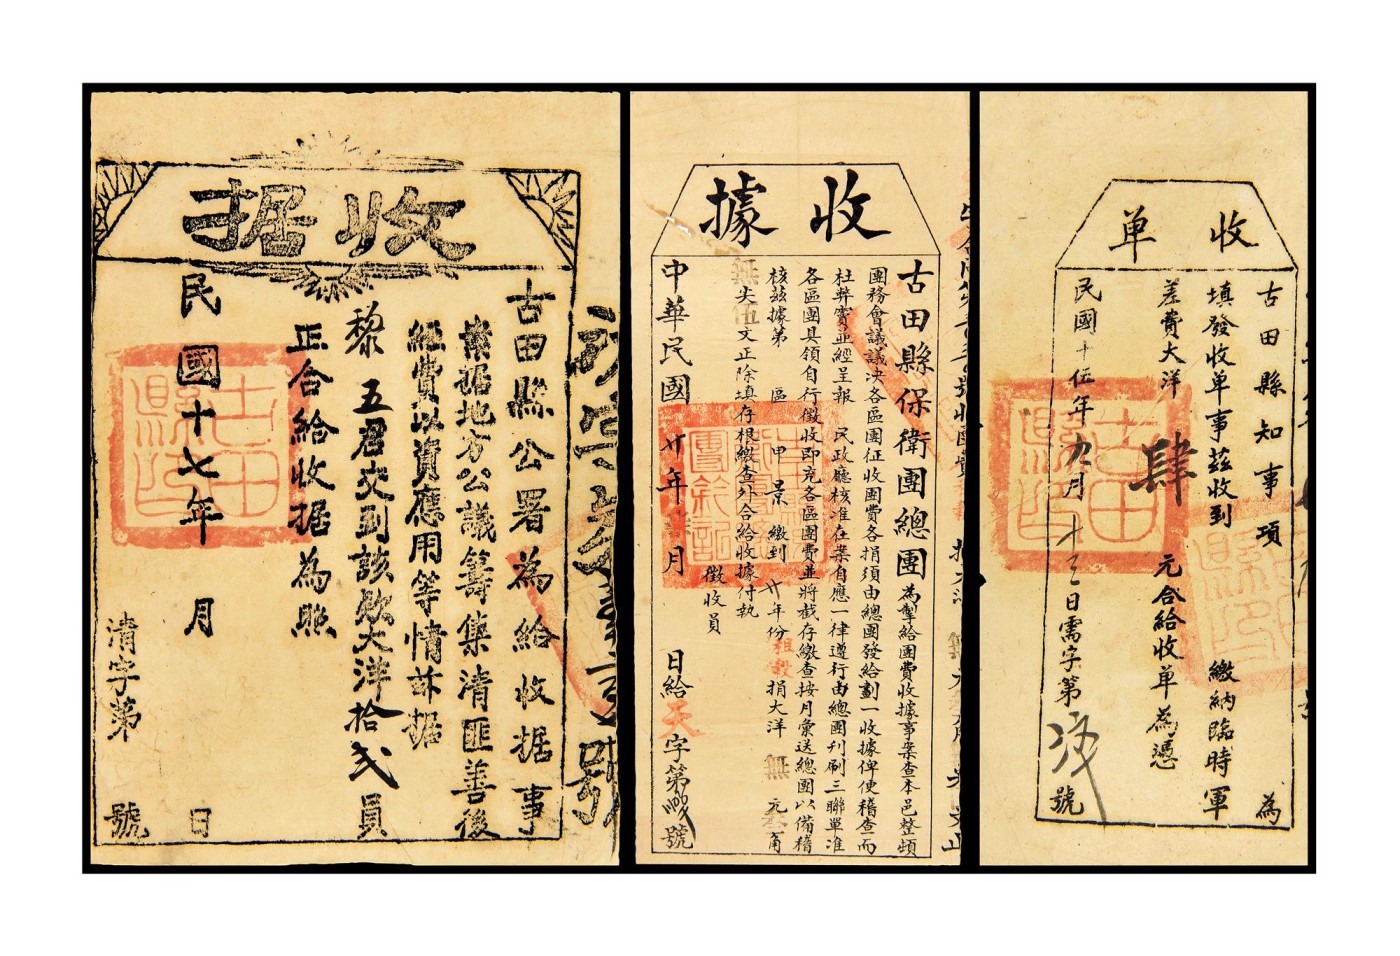 收据
古田縣公署為給收据事
業据地方公議籌集清匪善後
經費以資應用等情茲据
黎 五君交到該款大洋拾弍員
正合給收据為照
民國十七年 月 日
清字第 號
收據
古田縣保衛團總團為掣給團費收據事案查本邑整頓
團務會議議决各區團征收團費各捐須由總團發給劃一收據俾便稽查而
杜弊竇並經呈報 民政廳核准在案自應一律遵行由總團刋刷三聯單准
各區團具領自行徵收即充各區團費並將截存繳查按月彙送總團以備稽
核茲據第 區 甲 景 繳到 廿年份租穀捐大洋 無元 角
無尖伍文正除填存根繳查外合給收據付執
徵收員
中華民國廿年 月 日給天字第 號
收单
古田縣知事 為
填發收单事茲收到
項 繳納臨時軍
差費大洋 肆 元合給收单為憑
民國十伍年九月十三日需字第 號
古田縣印